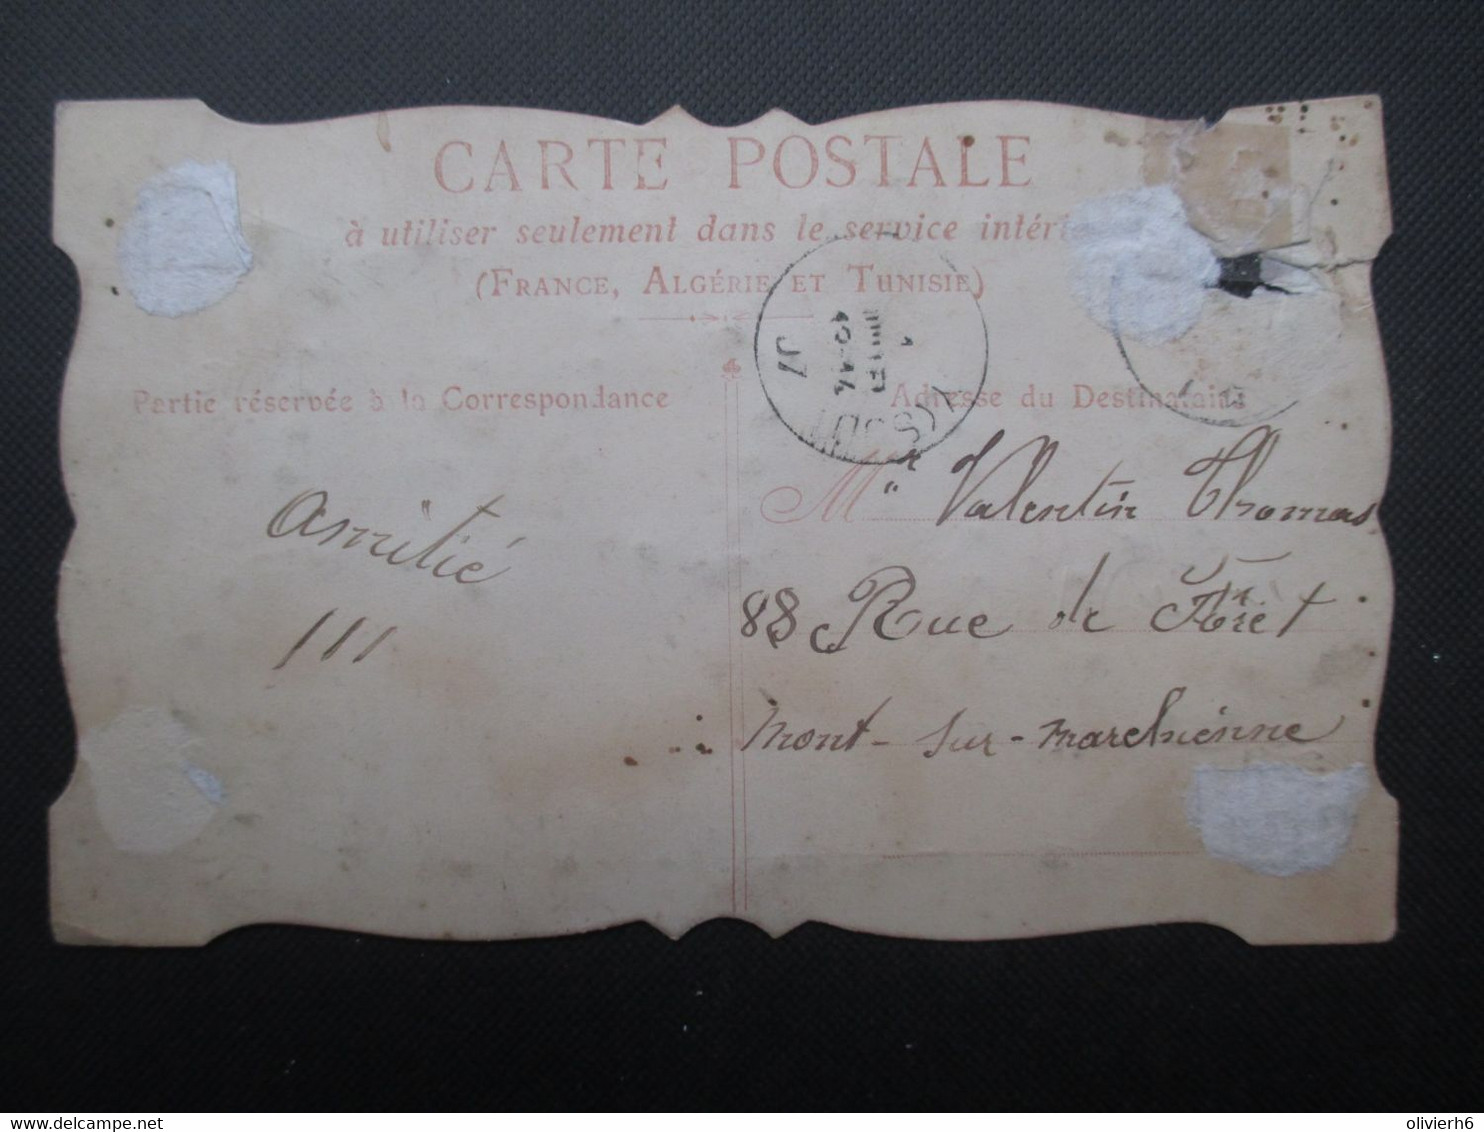 CARTE POSTALE
à utiliser seulement dans le service intéri
(FRANCE, ALGÉRIE ET TUNISIE)
Partie réservée à la Correspondance
Adresse du Destinataire
Mr Valentin Thomas
88 Rue de Forêt
Mont-sur-marchienne
amitié
111
07
delcampe.net
olivierh6